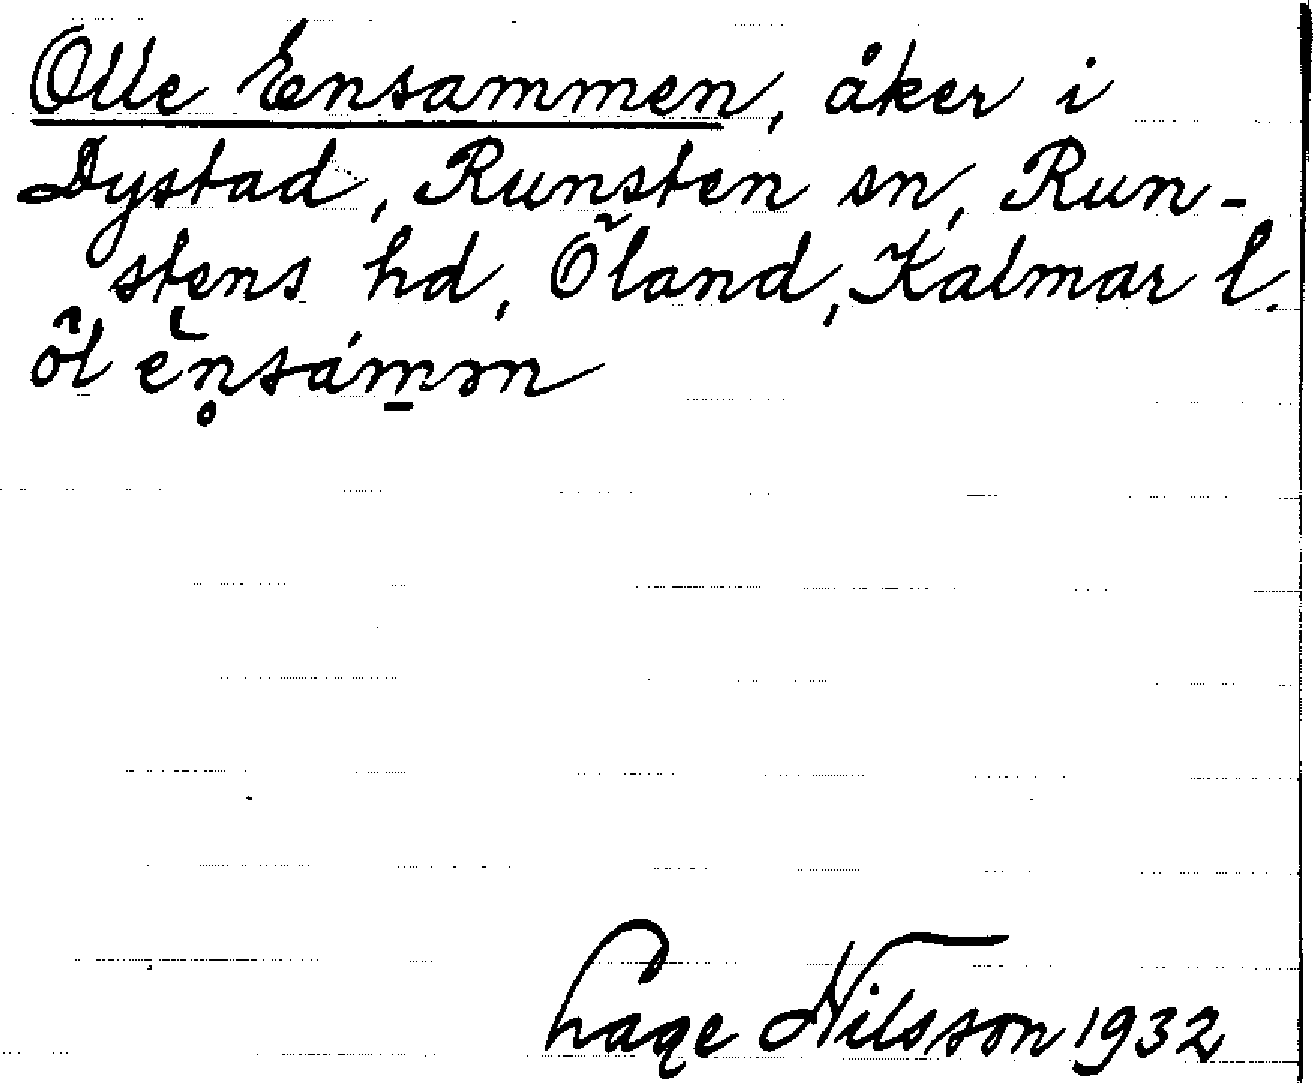 Olle Ensammen, åker i
Dystad, Runsten sn, Run-
stens hd, Öland, Kalmar l.
öl ensamm
Lage Nilsson 1932